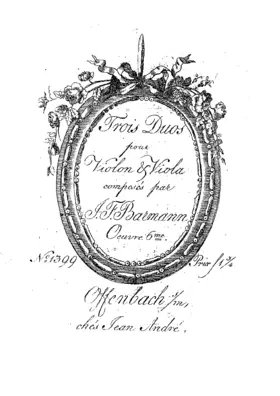 Trois Duos
pour
Violon & Viola
composés par
J. F. Barmann
Oeuvre 6me.
No. 1399
Prix f 1¾
Offenbach s/m,
chés Jean André.